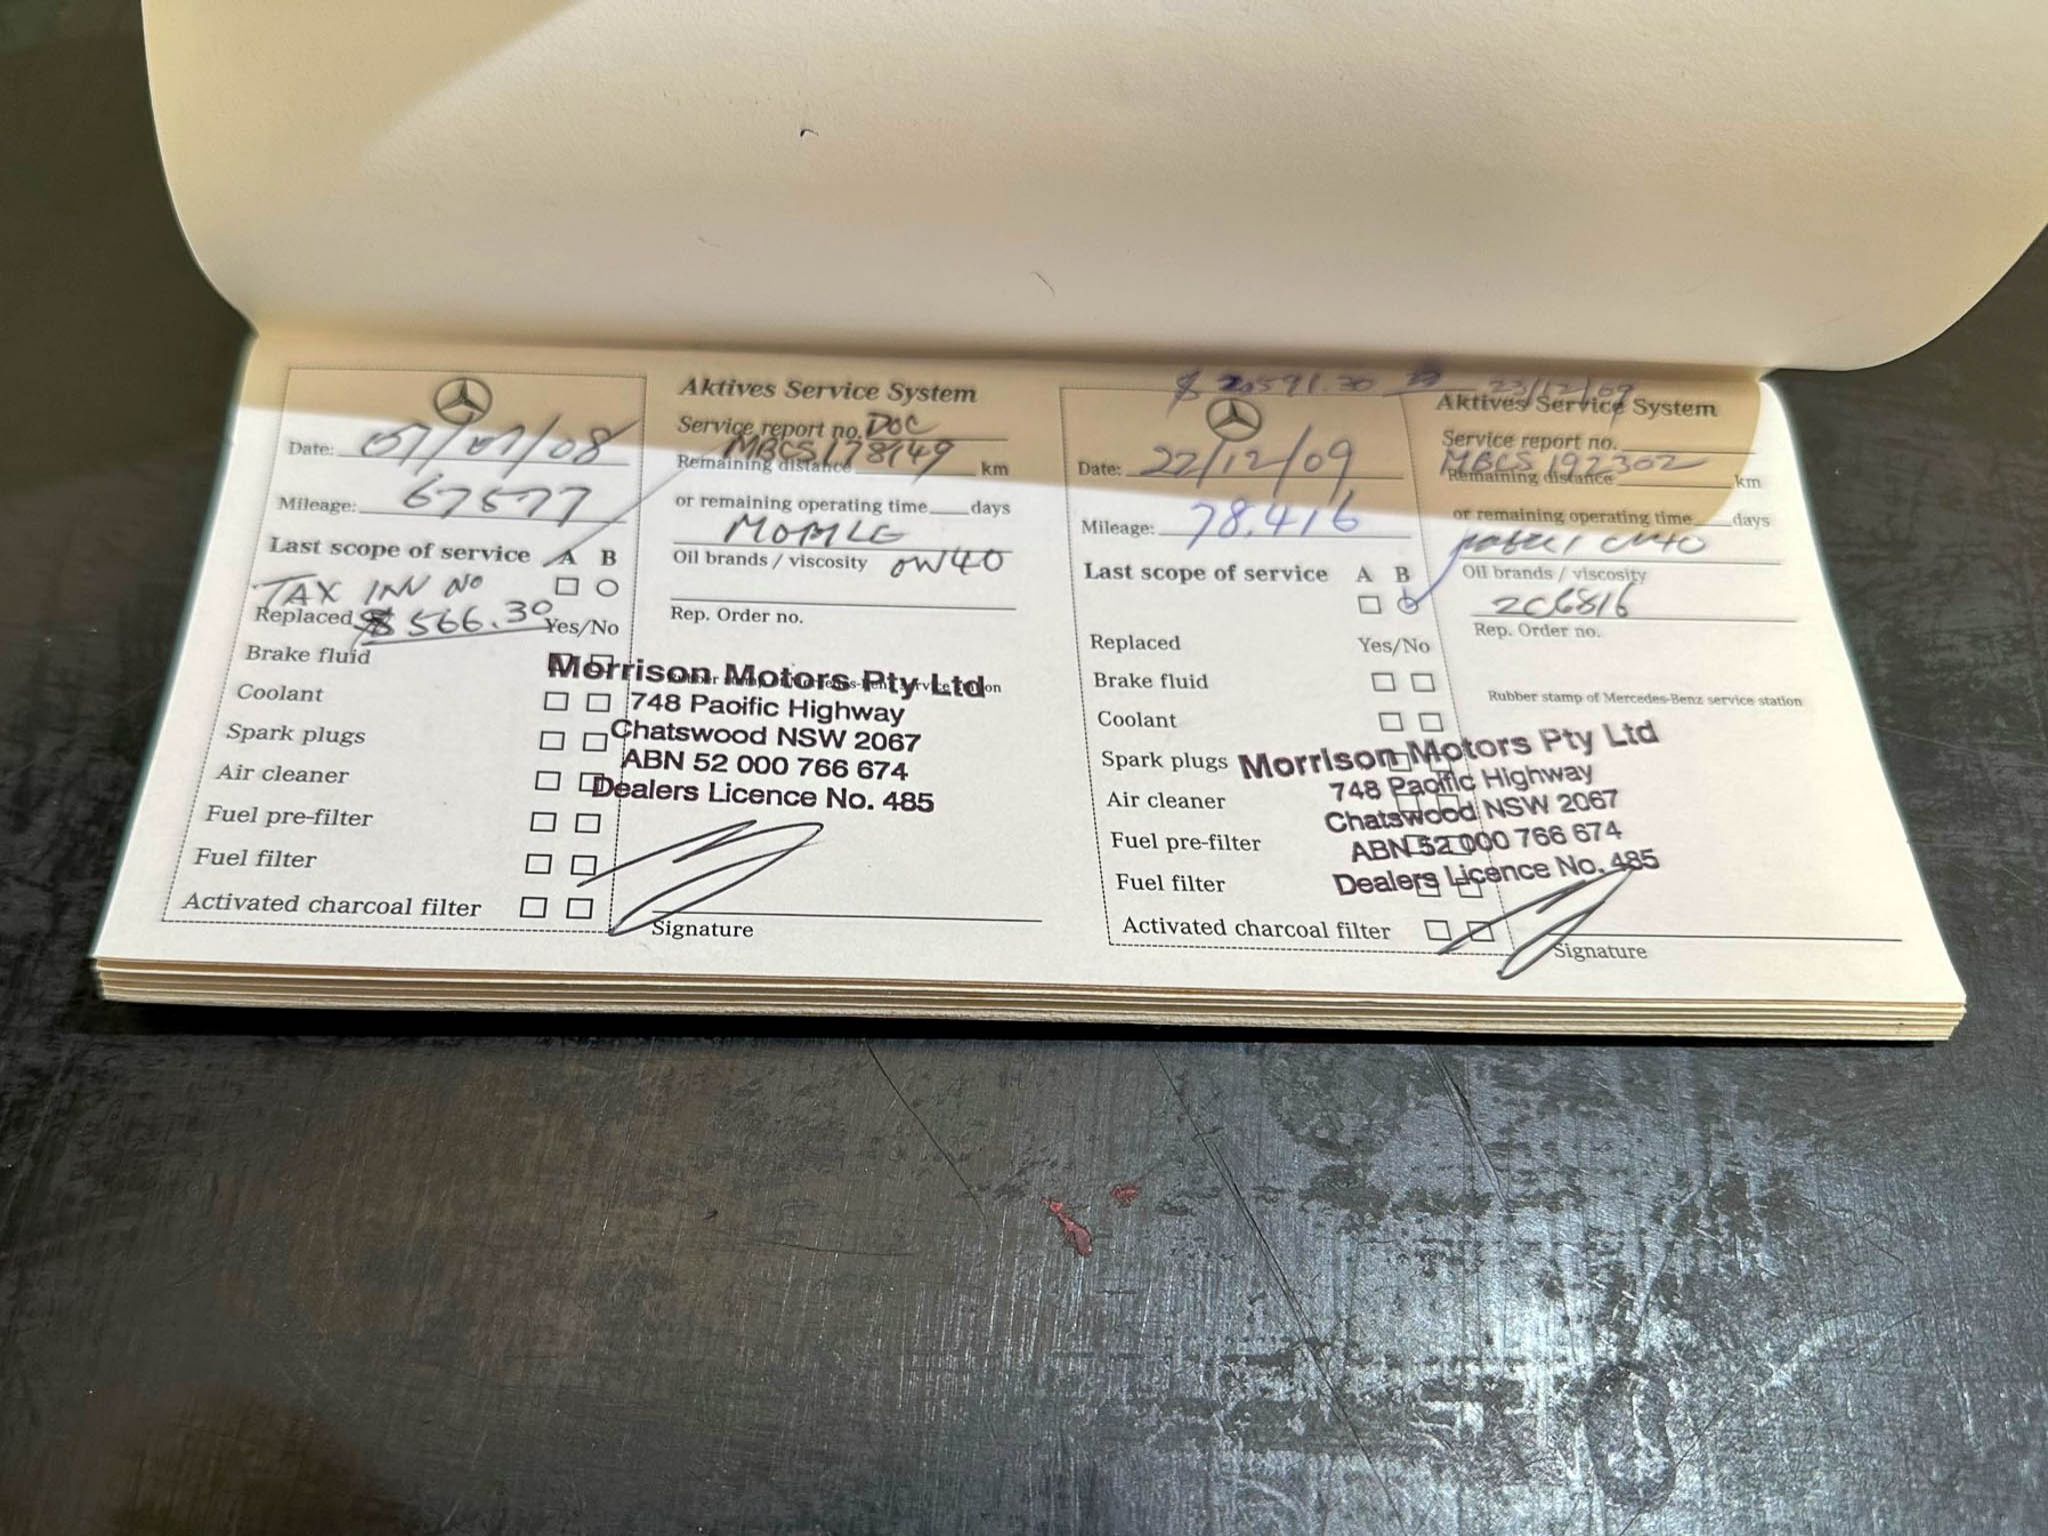 Aktives Service System
Date: 07/07/08
Service report no. DOC
MBCS178149
Remaining distance km
Mileage: 67577
or remaining operating time days
Last scope of service A B
Oil brands / viscosity 0W40
TAX INV NO
Replaced $566.30 Yes/No
Rep. Order no.
Brake fluid
Coolant
Spark plugs
Air cleaner
Fuel pre-filter
Fuel filter
Activated charcoal filter
Morrison Motors Pty Ltd
748 Pacific Highway
Chatswood NSW 2067
ABN 52 000 766 674
Dealers Licence No. 485
Signature
23/12/09
Aktives Service System
Date: 22/12/09
Service report no.
MBCS 192302
Remaining distance km
Mileage: 78.416
or remaining operating time days
Last scope of service A B
Oil brands / viscosity
Rep. Order no.
Replaced Yes/No
Brake fluid
Coolant
Spark plugs
Air cleaner
Fuel pre-filter
Fuel filter
Activated charcoal filter
Rubber stamp of Mercedes-Benz service station
Morrison Motors Pty Ltd
748 Pacific Highway
Chatswood NSW 2067
ABN 52 000 766 674
Dealers Licence No. 485
Signature